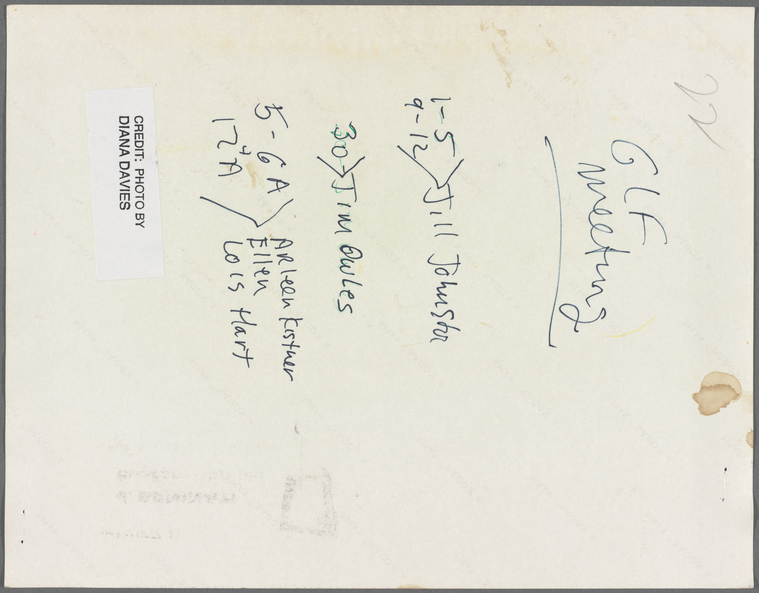 22
GLF
meeting
1-5
9-12 > Jill Johnston
30 > Jim Owles
5-6A > Arleen Kistner
Ellen
12A Lois Hart
CREDIT: PHOTO BY
DIANA DAVIES